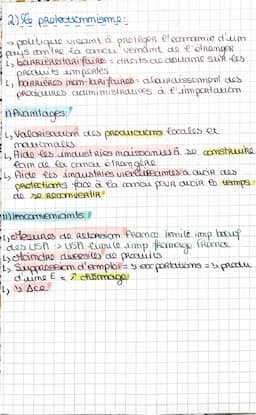 2) Le protectionnisme:
→ politique visant à protéger l'économie d'un
pays contre la concu venant de l'étranger
↳ barrières tarifaires = droits de douane sur les
produits importés
↳ barrières non tarifaires = alourdissement des
procédures administratives à l'importation
i) Avantages:
↳ Valorisation des productions locales et
nationales
↳ Aide les industries naissantes à se construire
loin de la concu étrangère
↳ Aide les industries vieillissantes à avoir des
protections face à la concu pour avoir le temps
de se reconvertir
ii) inconvénients:
↳ Mesures de rétorsion France limite imp bœuf
des USA → USA limite imp fromage France
↳ Moindre diversités de produits
↳ Suppression d'emploi = ↘ exportations = ↘ produ
d'une E = ↗ chômage